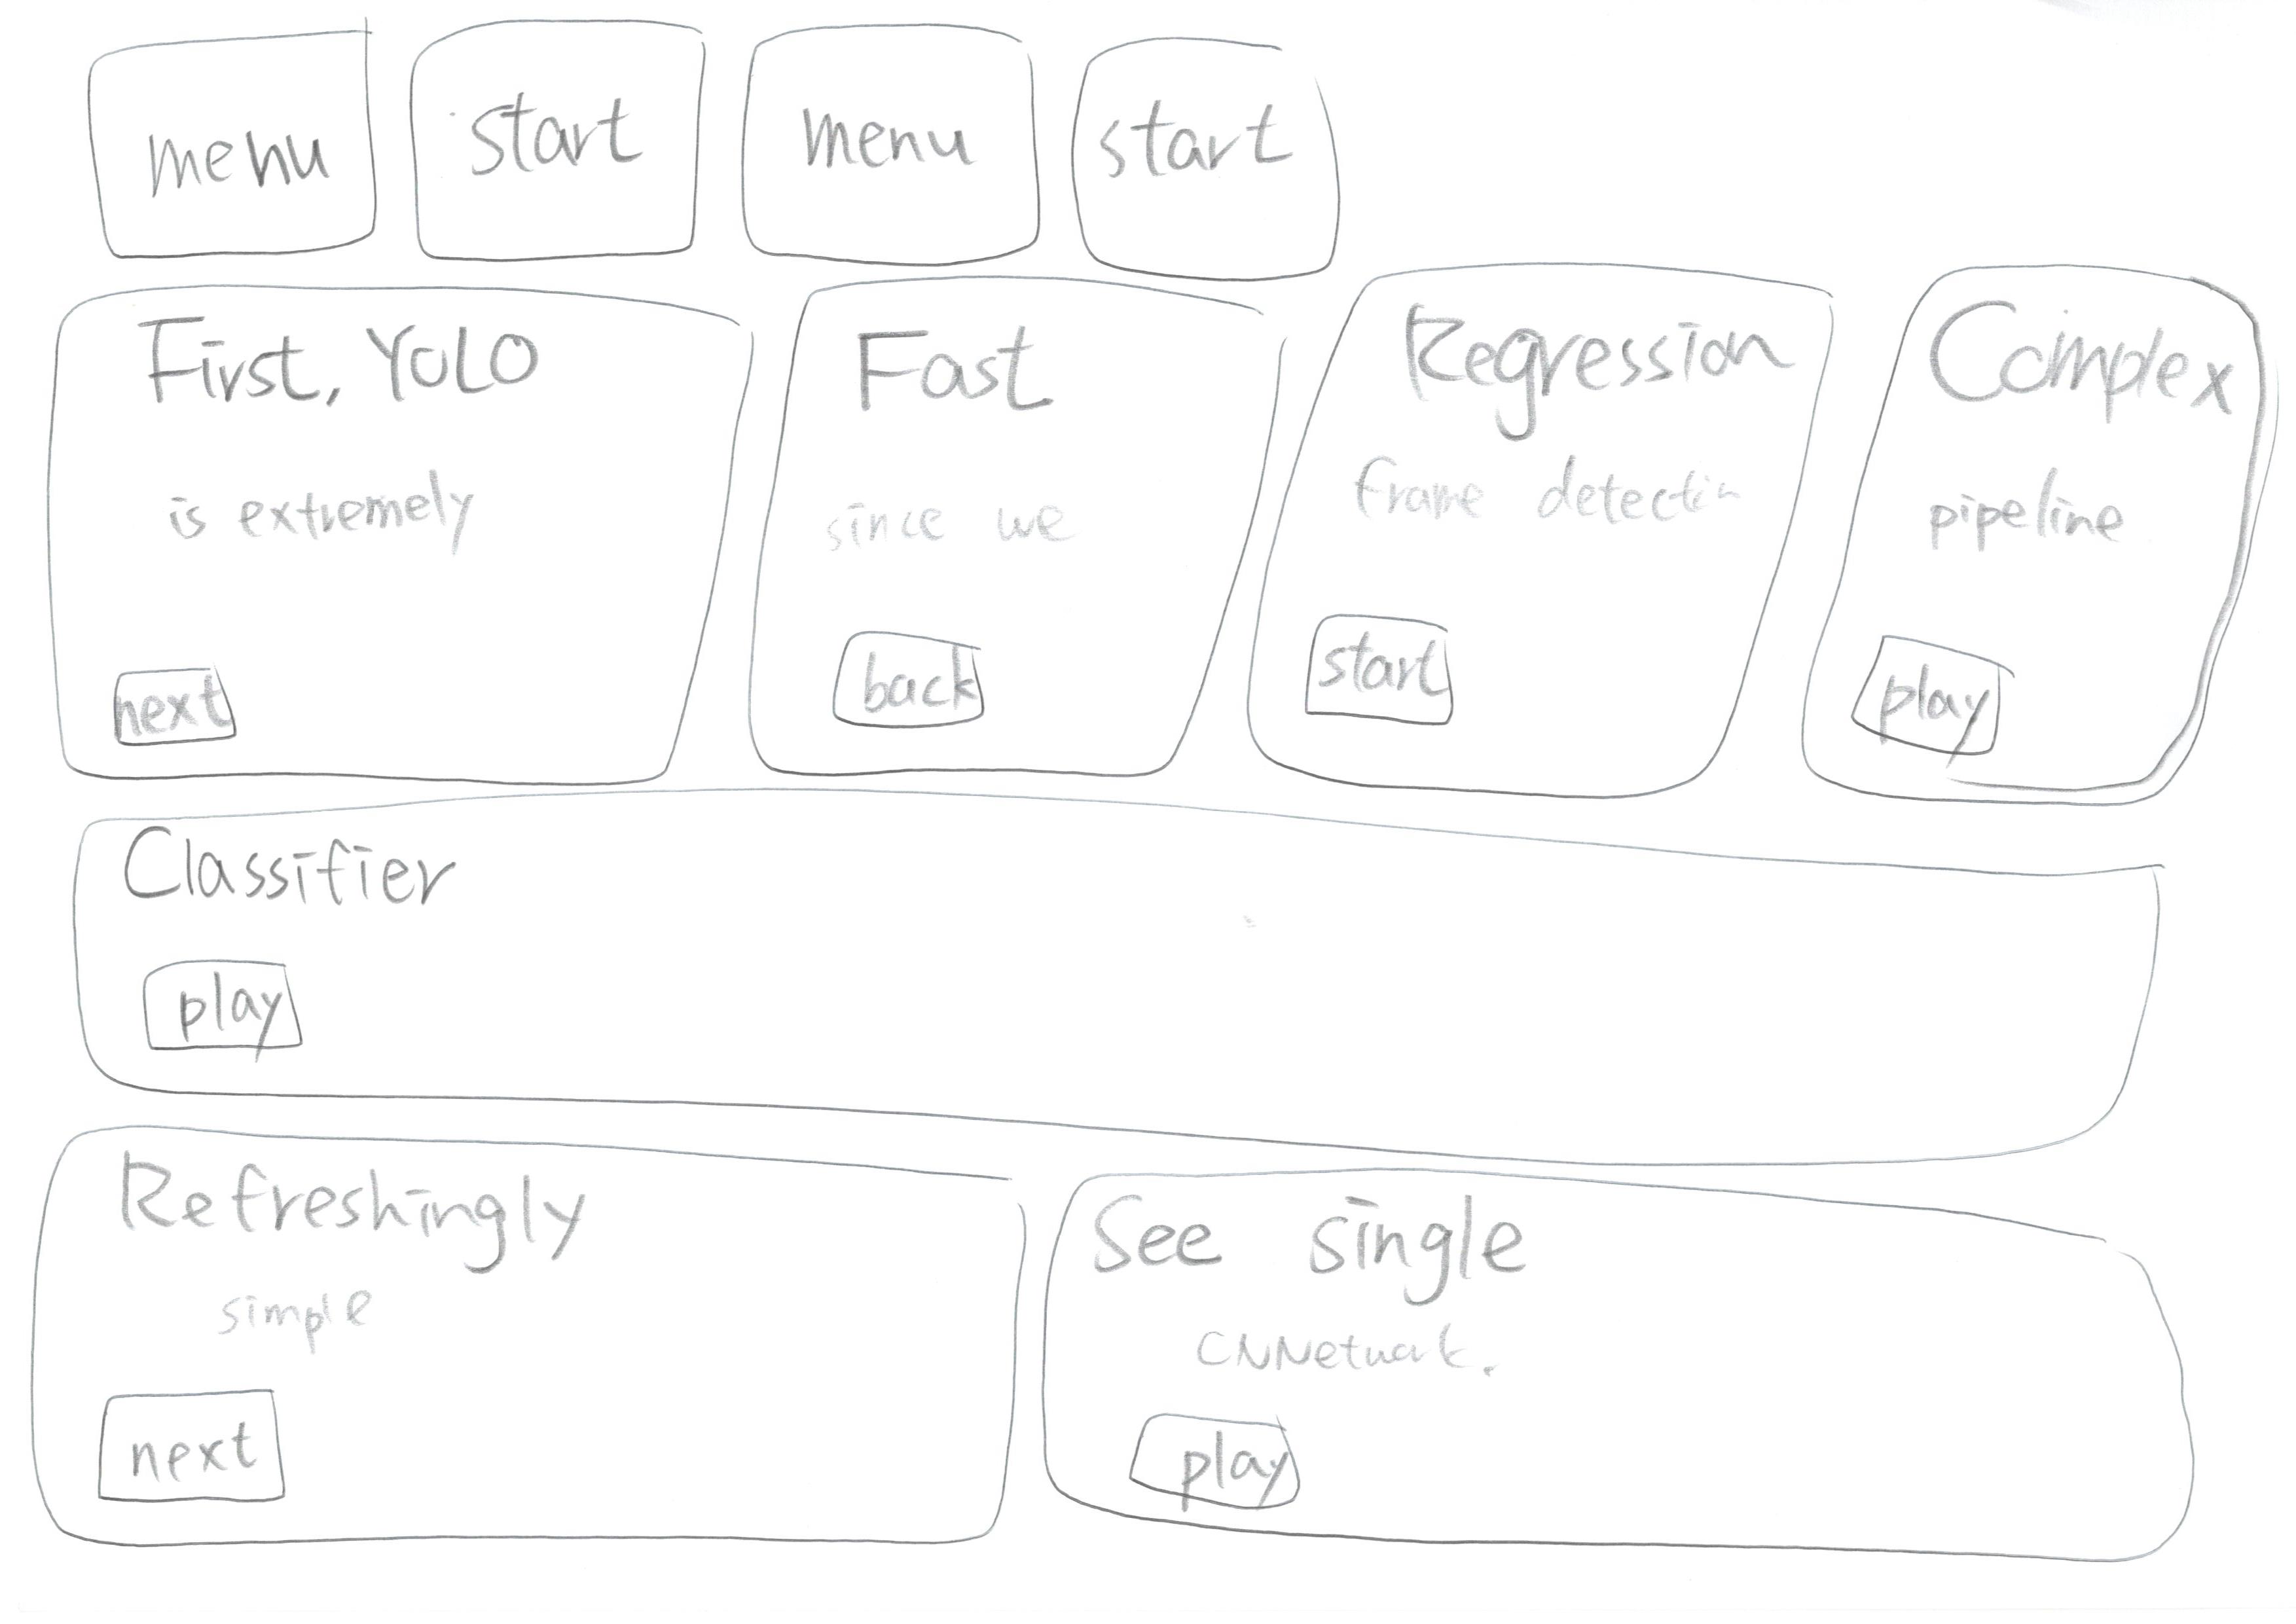 menu
start
menu
start
First, YOLO
is extremely
next
Fast
since we
back
Regression
frame detectin
start
Complex
pipeline
play
Classifier
play
Refreshingly
simple
next
See single
CNNetwork.
play